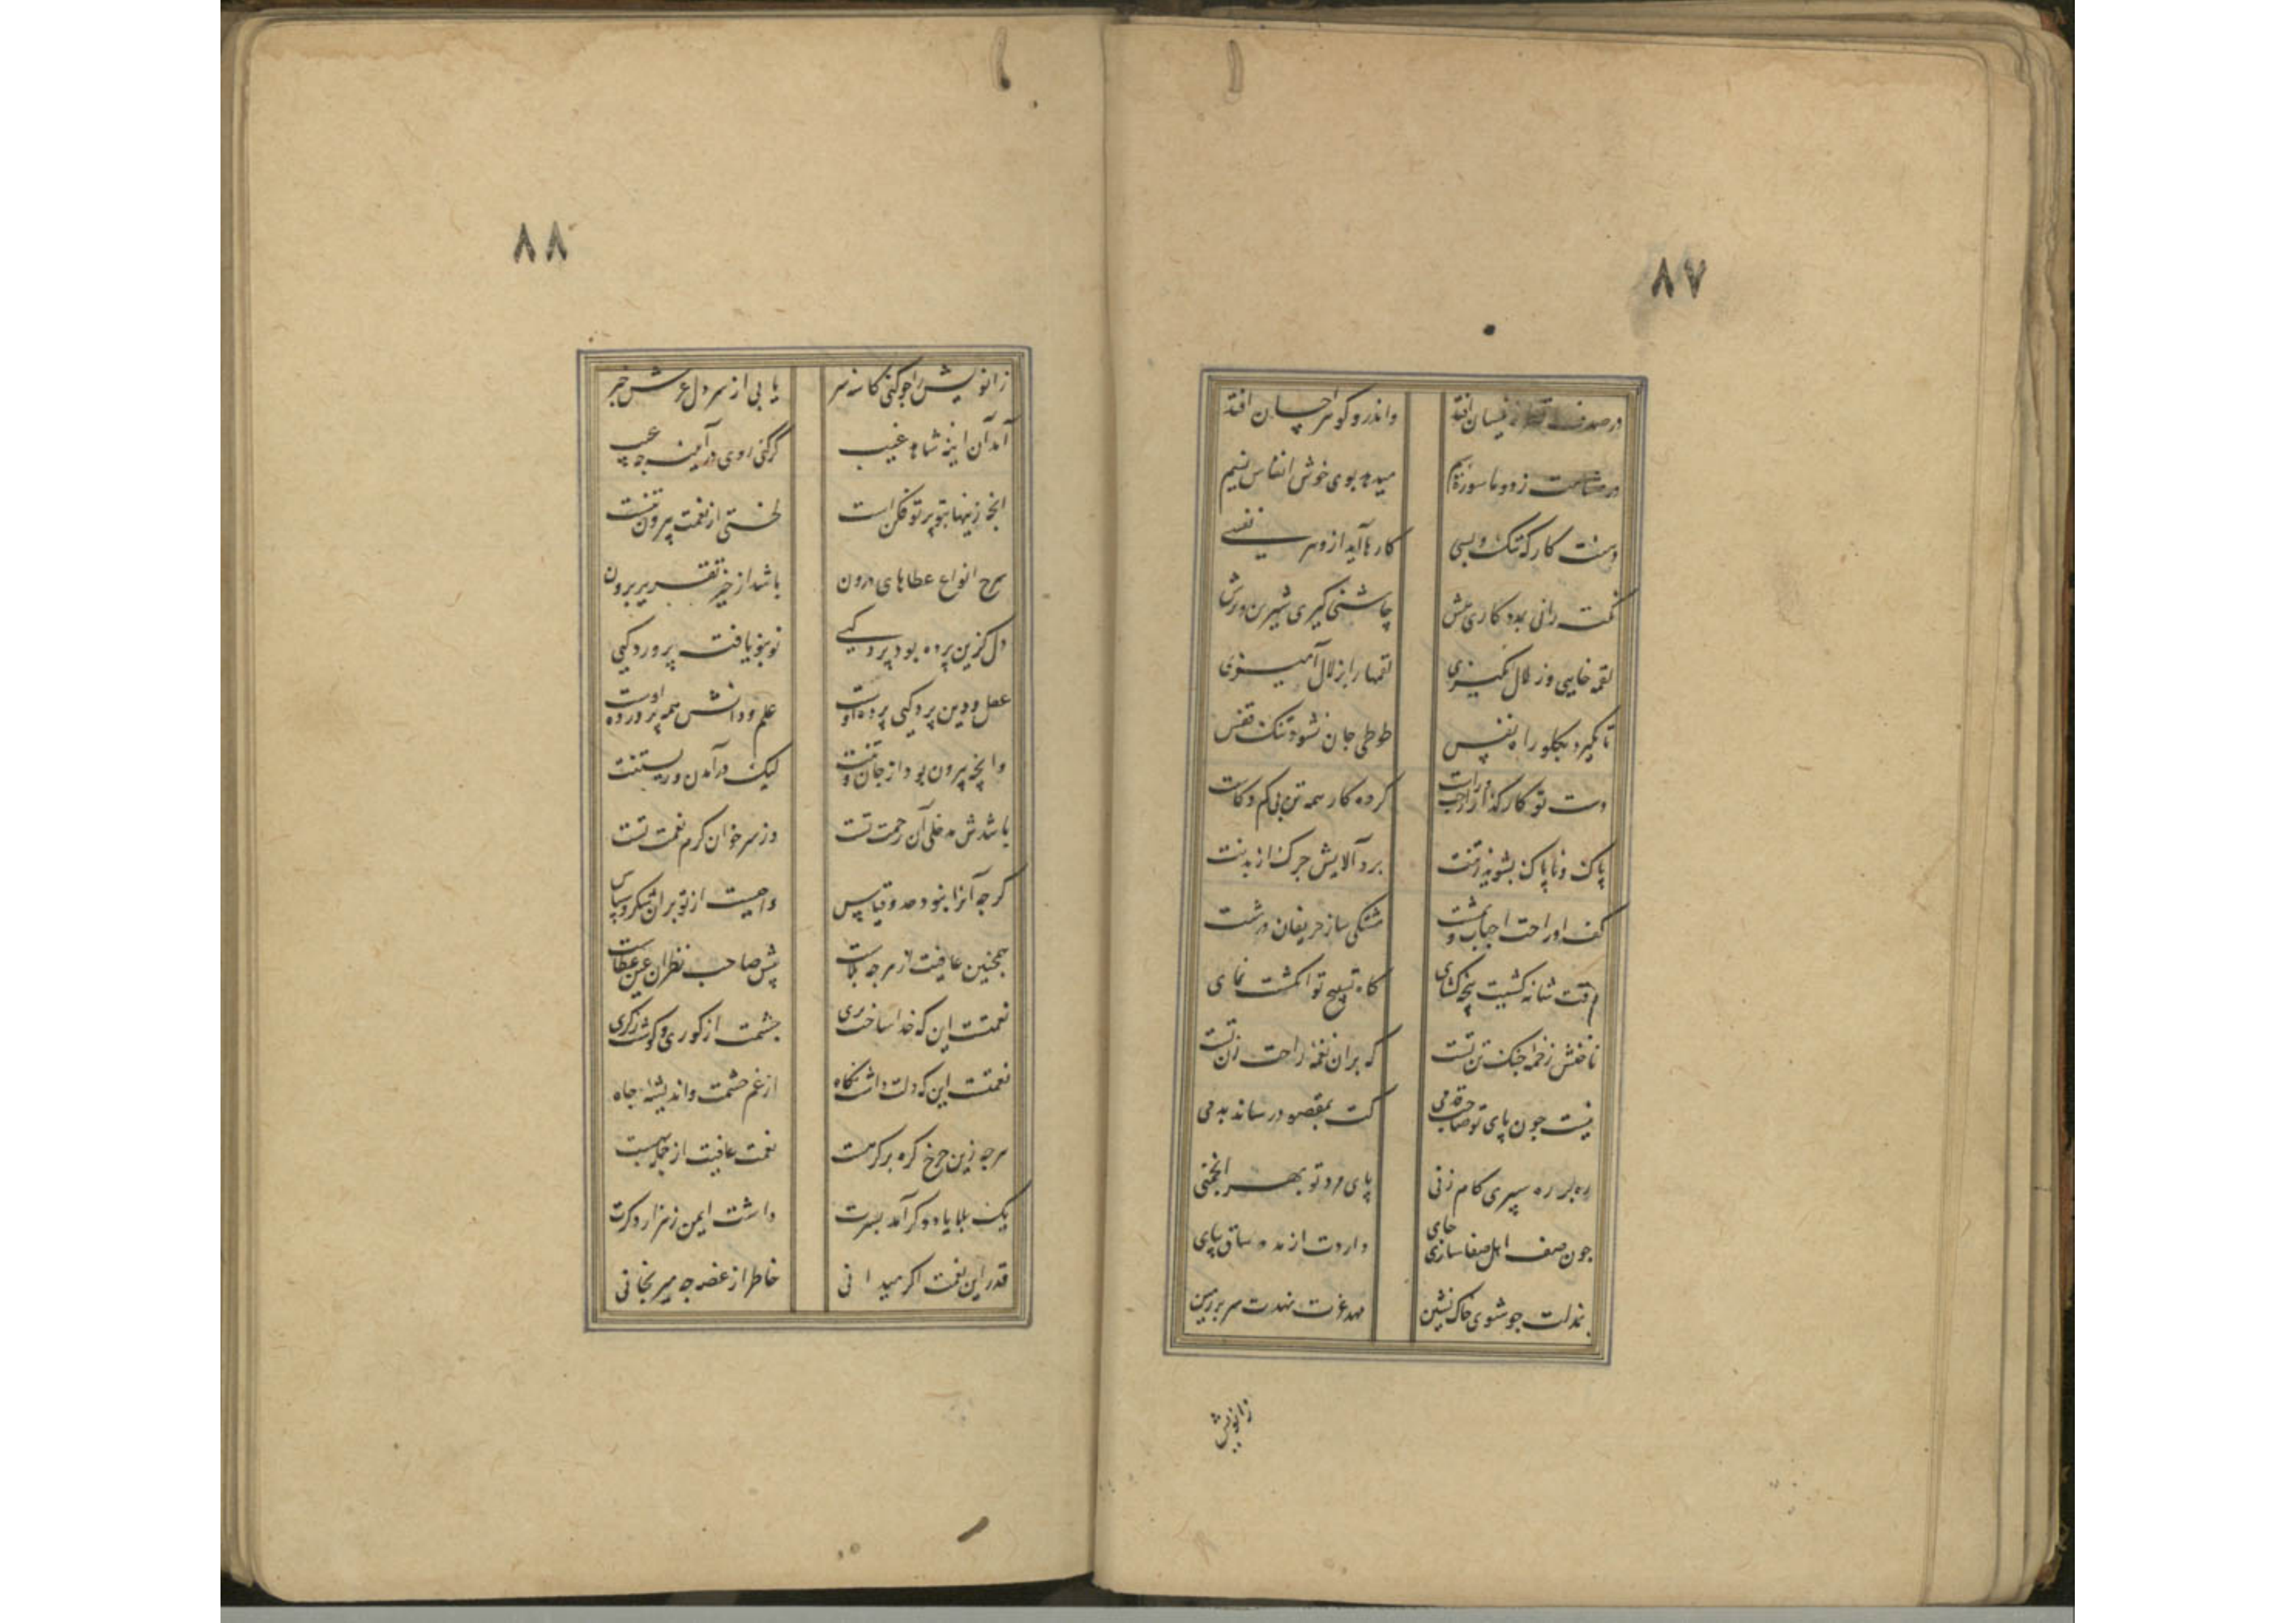 ۸۷
در صدف قطره نیسان افتد واندرو گوهر احسان افتد
در مشامت زدو ماسوره سیم میدهد بوی خوش انفاس نسیم
دستت کارکه تنک و بسی کارها آید ازو هر نفسی
نکت رانی بمدد کاری چاشنی کیری شیرین و ترش
لقمه خایی وز لال انگیزی لقمها را بزلال آمیزی
تا نکیرد بکلو راه نفس طوطی جان نشود تنک قفس
دست تو کارگذار از چپ و راست کرده کار همه تن بی کم و کاست
پاک و ناپاک بشوید ز تنت برد آلایش چرک از بدنت
کف او راحت احباب و بمشت مشتکی ساز حریفان درشت
وقت شانه کشیت پنجه کشای کاه تسبیح تو انکشت نمای
ناخنش زخمه چنک تن تست که بران نغمه راحت زن تست
نیست جون پای تو صاحب قدمی کت بمقصود رساند بدمی
ره بره سپری کام زنی پای مرد تو بهر انجمنی
جون صف اهل صفا سازی جای داردت از مدد ساق بپای
بمذلت جو شوی خاک نشین مهد عزت نهدت سر بزمین
زانویش
۸۸
زانویش را جو کنی کاسه سر یابی از سر دل عرش خبر
آمد آن اینه شاهد غیب کر کنی روی در آیینه جه عیب
انجه زینها بتو پرتو فکن است لختی از نعمت بیرون تنست
شرح انواع عطاهای درون باشد از حیز تقریر برون
دل کزین پرده بود پردکیی نو بنو یافته پروردکیی
عقل و دین پردکی پرده اوست علم و دانش همه پرورده اوست
وانجه بیرون بود از جان و تنت لیک در آمدن و زیستنت
باشدش مدخلی آن رحمت تست وز سر خوان کرم نعمت تست
کرجه آنرا نبود حد و قیاس واجبست از تو بران شکر و سپاس
همجنین عافیت از هرجه بلاست پیش صاحب نظران عین عطاست
نعمتست این که خدا ساخت بری جشمت از کوری و کوشت ز کری
نعمتست این که دلت داشت نکاه از غم حشمت و اندیشه جاه
هرجه زین جرخ کره بر کرهت نعمت عافیت از جمله بهست
یک بلا یا دو کر آمد بسرت داشت ایمن ز هزار دکرت
قدر این نعمت اکر میدانی خاطر از غصه جه میرنجانی